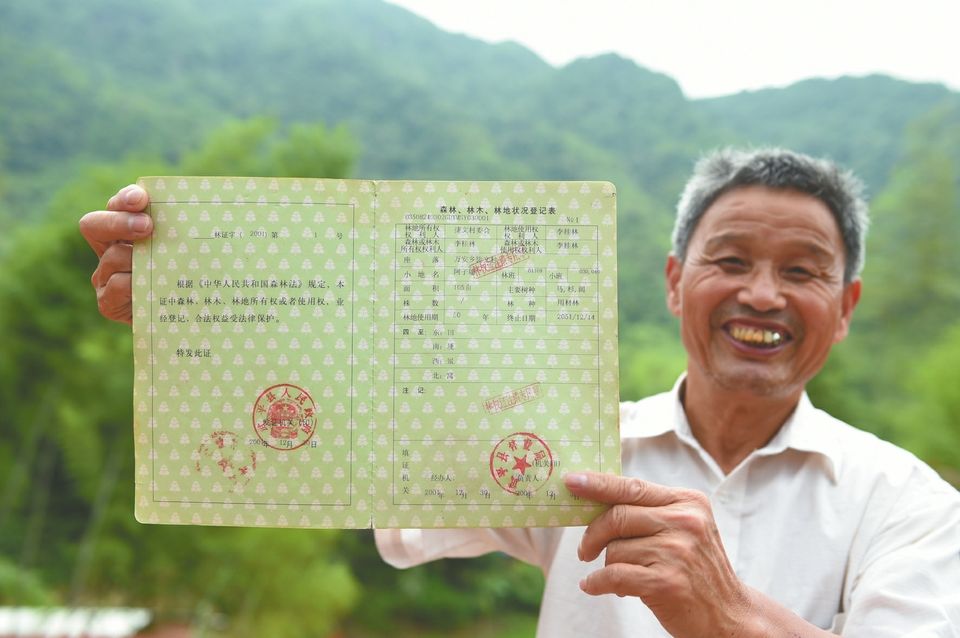 林证字（2001）第 1 号
根据《中华人民共和国森林法》规定，本
证中森林、林木、林地所有权或者使用权，业
经登记，合法权益受法律保护。
特发此证
武平县人民政府
发证机关（印）
2001年12月30日
森林、林木、林地状况登记表
No 1
林地所有权权利人 捷文村委会 林地使用权权利人 李桂林
森林或林木所有权权利人 李桂林 森林或林木使用权权利人 李桂林
座 落 万安乡捷文村
小 地 名 林班 小班
面 积 105亩 主要树种 马，杉，阔
株 数 / 林 种 用材林
林地使用期 50 年 终止日期 2051/12/14
四 至 东：田
南：垅
西：
北：窝
注 记：
填证机关
武平县林业局
（机关印）
经办人： 负责人：
2001年 12月 30日 2001年